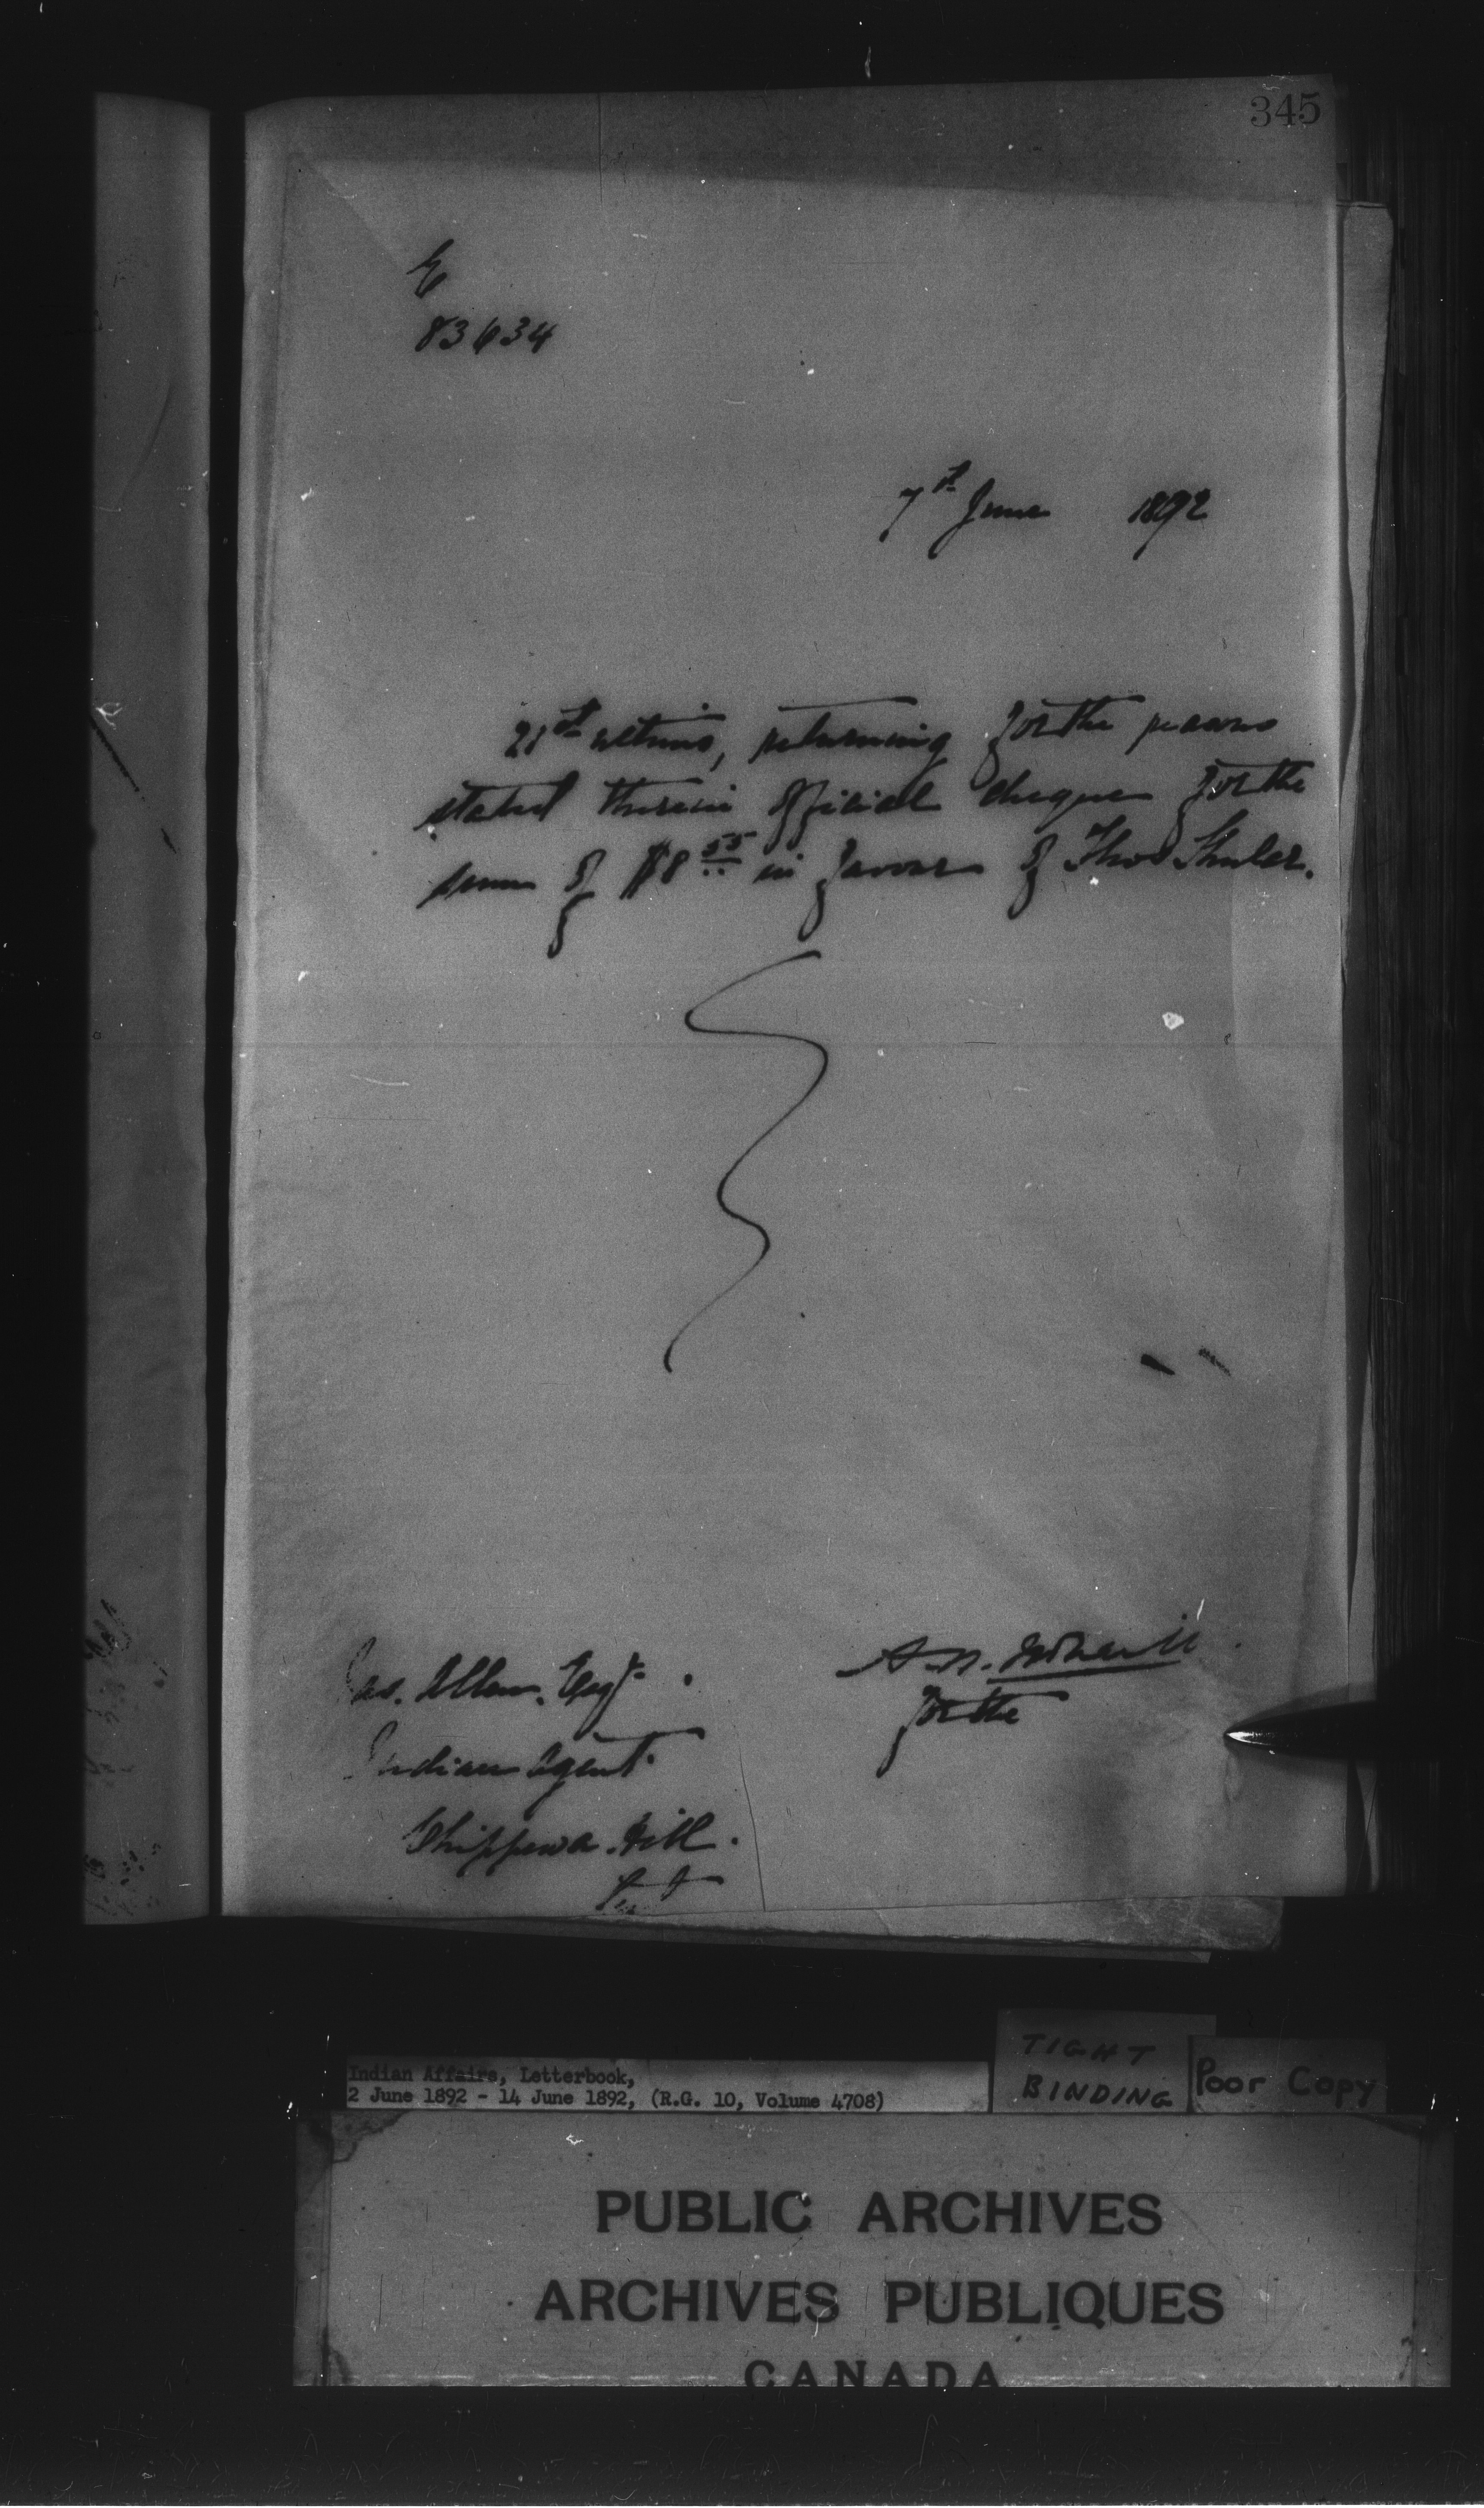 345
E
83634
7th June 1892
21st ultimo, returning for the reasons
stated therein official cheque for the
sum of $8 55 in favour of Thos
Jas. Allen, Esqr.
for the
Indian Agent.
Chippewa Hill.
Indian Affairs, Letterbook,
2 June 1892 - 14 June 1892, (R.G. 10, Volume 4708)
TIGHT
BINDING
Poor Copy
PUBLIC ARCHIVES
ARCHIVES PUBLIQUES
CANADA